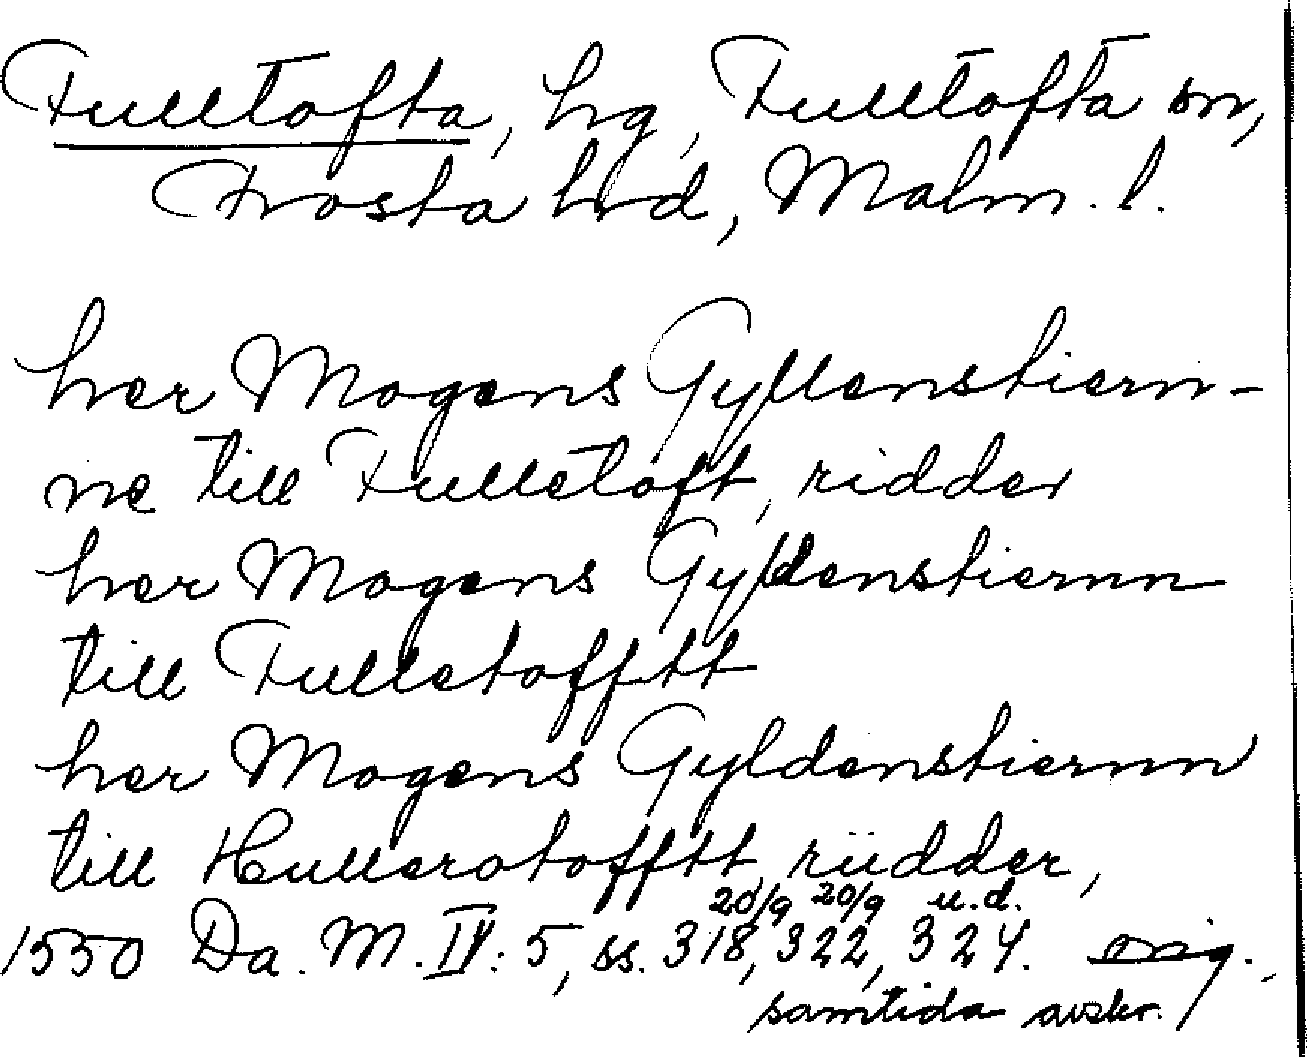 Fulltofta, hg, Fulltofta sn,
Frosta hrd, Malm. l.
her Mogens Gyllenstiern-
ne till Fulletoft, ridder
her Mogens Gyldenstiernn
till Fulletofftt
her Mogens Gyldenstiernn
till Hullerotofftt, riidder,
20/9 20/9 u.d.
1550 Da. M. IV: 5, ss. 318, 322, 324. orig.,
samtida avskr.